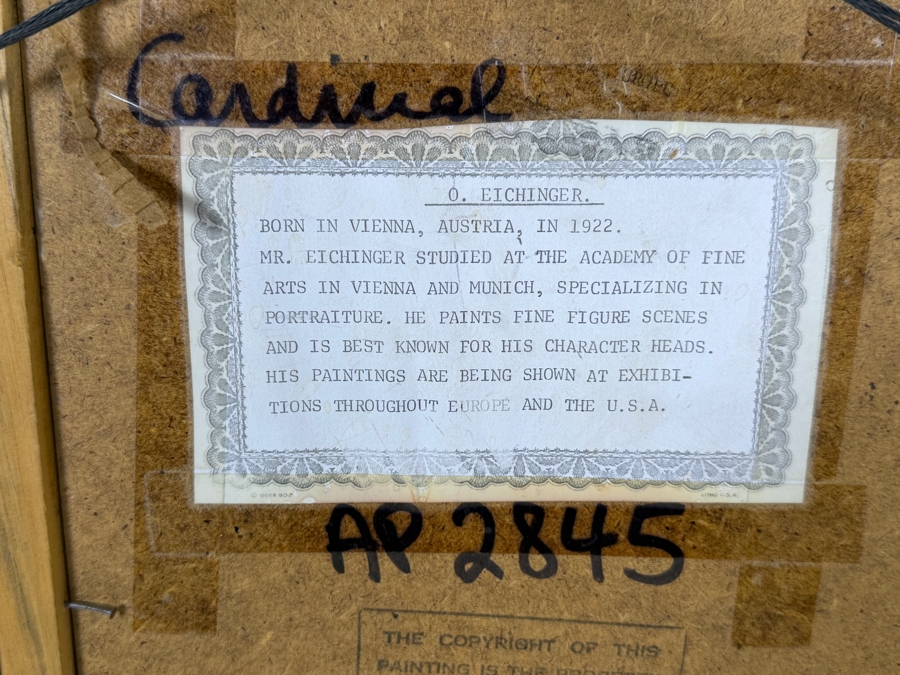 Cardinal
O. EICHINGER.
BORN IN VIENNA, AUSTRIA, IN 1922.
MR. EICHINGER STUDIED AT THE ACADEMY OF FINE
ARTS IN VIENNA AND MUNICH, SPECIALIZING IN
PORTRAITURE. HE PAINTS FINE FIGURE SCENES
AND IS BEST KNOWN FOR HIS CHARACTER HEADS.
HIS PAINTINGS ARE BEING SHOWN AT EXHIBI-
TIONS THROUGHOUT EUROPE AND THE U.S.A.
AP 2845
THE COPYRIGHT OF THIS
PAINTING IS THE